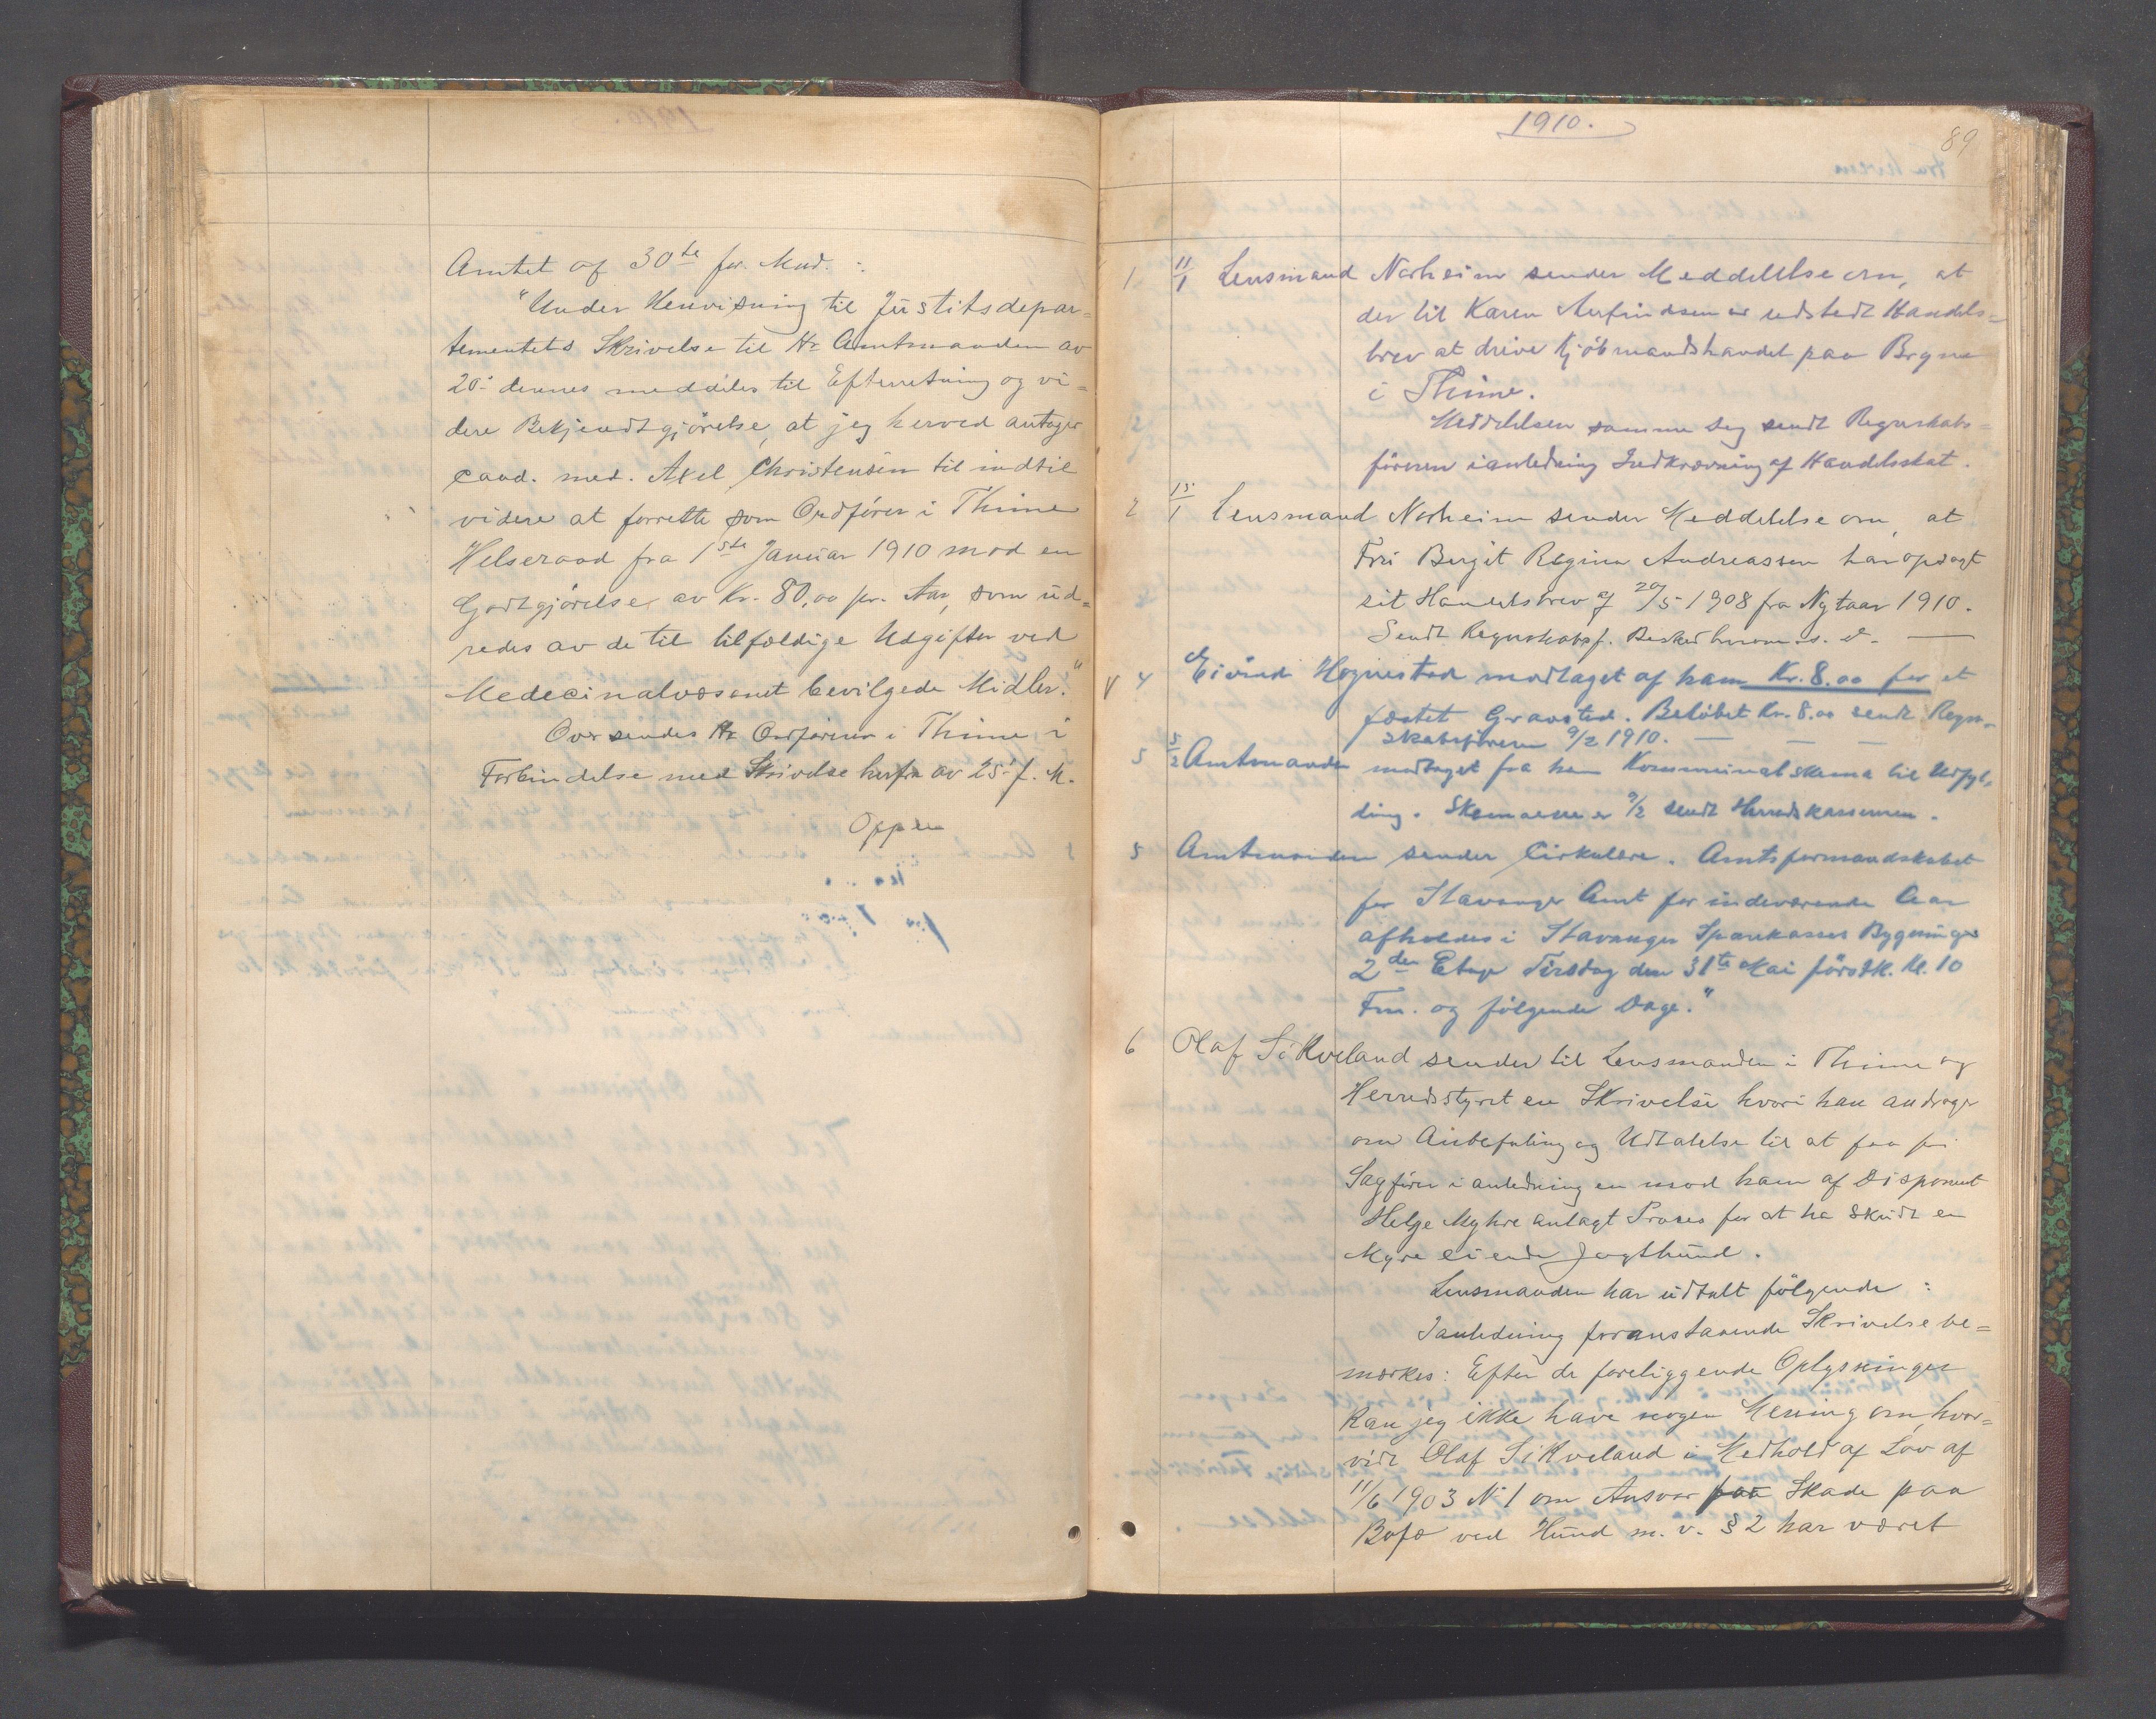 Amtet af 30te for. Mnd. :
"Under Henvisning til Justitsdepar=
tementets Skrivelse til Hr Amtmanden av
20. dennes meddeles til Efterretning og vi=
dere Bekjendtgjörelse, at jeg herved antager
cand. med. Axel Christensen til indtil
videre at forrette som Ordförer i Thime
Helseraad fra 1ste Januar 1910 mod en
Godtgjörelse av Kr. 80,00 pr. Aar, som ud=
redes av de til tilfældige Udgifter ved
Medecinalvæsenet bevilgede Midler."
Oversendes Hr Ordföreren i Thime i
Forbindelse med Skrivelse herfra av 25. f. M.
1910.
89
1 11/1 Lensmand Norheim sender Meddelelse om, at
der til Karen Aufindsen er udstedt Handels=
brev at drive Kjöbmandshandel paa Bryne
i Thime.
Meddelelsen samme Dag sendt Regnskabs=
föreren i anledning Indkrævning af Handelsskat.
2 15/1 Lensmand Norheim sender Meddelelse om, at
Fru Bergit Regine Andreassen har opsagt
sit Handelsbrev af 20/5 1908 fra Nytaar 1910.
Sendt Regnskabsf.
4 Eivind Hognestad modtaget af ham Kr. 8.00 for et
fæstet Gravsted. Belöbet Kr. 8.00 sendt Regn=
skabsföreren 9/2 1910. — — —
5 5/2 Amtmanden modtaget fra ham Kommunalskema til Udfyl=
ding. Skemaerne er 9/2 sendt Herredskassereren.
5 Amtmanden sender Cirkulære. Amtsformandskabet
for Stavanger Amt for indeværende Aar
afholdes i Stavanger Sparekasses Bygninger
2den Etage Tirsdag den 31te Mai förstk. Kl. 10
Fm. og fölgende Dage."
6 Olaf Sikveland sender til Lensmanden i Thime og
Herredsstyret en Skrivelse hvori han andrager
om Anbefaling og Udtalelse til at faa fri
Sagförer i anledning en mod ham af Disponent
Helge Myhre anlagt Proses for at ha skudt en
Myre eiende Jagthund.
Lensmanden har udtalt fölgende :
I anledning foranstaaende Skrivelse be=
mærkes: Efter de foreliggende Oplysninger
kan jeg ikke have nogen Mening om, hvor=
vidt Olaf Sikveland i Medhold af Lov af
11/6 1903 N. 1 om Ansvar paa Skade paa
Bufæ ved Hund m. v. § 2 har været